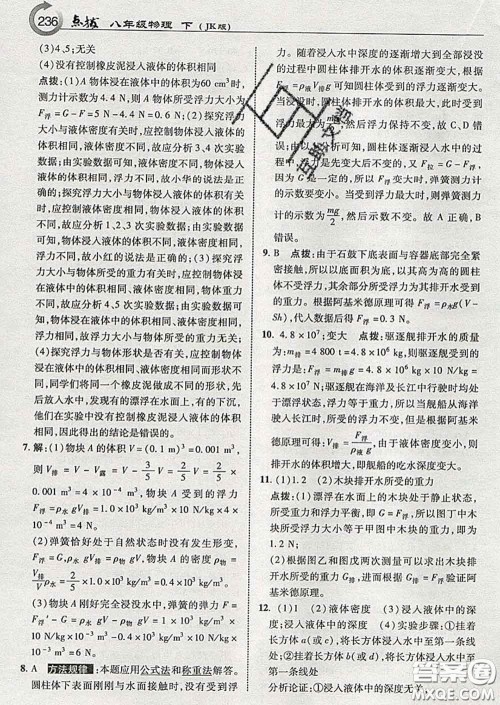 236 点拨 八年级物理 下 (JK版)
(3)4,5;无关
(4)没有控制橡皮泥浸入液体的体积相同
点拨:(1)A物体浸入液体中的体积为60 cm³时,
测力计示数为4.4 N,则A物体所受浮力大小为
F浮=G-F=5 N-4.4 N=0.6 N。(2)探究浮力
大小与液体密度有关时,应控制物体浸入液体的体
积相同,液体密度不同,故应分析3,4次实验数据;
由实验数据可知,物体浸入液体体积相同时,液体
密度不同,浮力不同,故小华的说法是正确的;探究
浮力大小与物体浸入液体的体积有关时,应控制液
体密度相同,物体浸入液体的体积不同,故应分析
1,2,3次实验数据;由实验数据可知,液体密度相
同时,物体浸入液体的体积不同,物体受到的浮力
不同,故小红的说法是正确的。(3)探究浮力大小
与物体所受的重力有关时,应控制液体密度相同,
物体浸入液体的体积相同,物体重力不同,故应分
析4,5次实验数据;由实验数据可知,物体受到的
浮力大小与物体所受的重力无关。
(4)探究浮力与物体形状是否有关,应控制液体密
度和物体浸入液体的体积相同,物体形状不同,小
明等几位同学将同一个橡皮泥做成不同形状,分别
放入水中,发现有的漂浮在水面上,有的沉入水底,
他们在实验中没有控制橡皮泥浸入液体的体积相
同,因此得出的结论是错误的。
7. 解:(1)物块A的体积V=(0.1 m)³=1×10⁻³ m³,
则V排=V-V露=V-2/5 V=3/5 V=3/5×1×
10⁻³ m³=6×10⁻⁴ m³,物块A受到的浮力
F浮=ρ水gV排=1.0×10³ kg/m³×10 N/kg×
6×10⁻⁴ m³=6 N。
(2)弹簧恰好处于自然状态时没有发生形变,
F浮=G,ρ水gV排=ρ物gV,物块A的密度ρ物=
V排/V ρ水=3/5×1.0×10³ kg/m³=0.6×10³ kg/m³。
(3)物块A刚好完全浸没水中,弹簧的弹力F=
F浮′-G=ρ水gV-ρ物gV=1.0×10³ kg/m³×
10 N/kg×1×10⁻³ m³-0.6×10³ kg/m³×
10 N/kg×1×10⁻³ m³=4 N。
8. A 方法规律:本题应用公式法和称重法解答。
圆柱体下表面刚刚与水面接触时,没有受到浮
力,
此时浮力最小;随着浸入水中体积的逐渐增大,
的过程中圆柱体排开水的体积逐渐变大,根据
F浮=ρ水gV排可知圆柱体受到的浮力逐渐变大。
当浸没时,圆柱体排开水的体积最大,此时受到
浮力最大,然后浮力保持不变,故C、D错
误。圆柱体逐渐浸入水中时,受到的浮力
增大,重力不变,又F拉=G-F浮,弹簧测力计
的示数要变小,
为mg/2,然后示数不变。故A正确,B
错误。
9. B 点拨:由于石鼓下底表面与容器底部完全紧
密接触,所以以底面积为底面的高为h的圆柱
体不受浮力,其余部分所受浮力为其受到的浮
力的大小。根据阿基米德原理可得F浮=ρ水g(V-
Sh),代入数据后得F浮=0.3 N。
10. 4.8×10⁷;变大 点拨:驱逐舰满载时排开水的
质量:m排=4 800 t=4.8×10⁶ kg,驱逐舰受到的
浮力:F浮=G排=m排g=4.8×10⁶ kg×10 N/kg=
4.8×10⁷ N;驱逐舰在海洋及长江中行驶时都处于
漂浮状态,浮力等于重力,所以当舰船从海洋
驶入长江时,所受浮力不变,根据阿基米
德原理可得:V排=F浮/ρ液g,由于液体密度变小,则
排开水的体积增大,即舰船的吃水深度变大。
11. (1)1.2 (2)木块排开水所受的重力
点拨:(1)漂浮在水面上的木块处于静止状态,
所受重力和浮力平衡,即G=F浮,所以图丁中木
块所受浮力大小等于图甲中木块的重力,即为
1.2 N;
(2)根据图乙和图戊两次测量可以求出木块排
开水所受的重力G排,进而根据F浮=G排验证阿
基米德原理。
12. (1)1 (2)液体密度 (3)浸入液体中的深
度 (4)实验步骤:①挂着长方体(或a)将其浸
入液体中至第一条线处;②挂着
长方体(或b)将其浸入水中至第一条线处
分析论证:①浸入液体中的深度无关